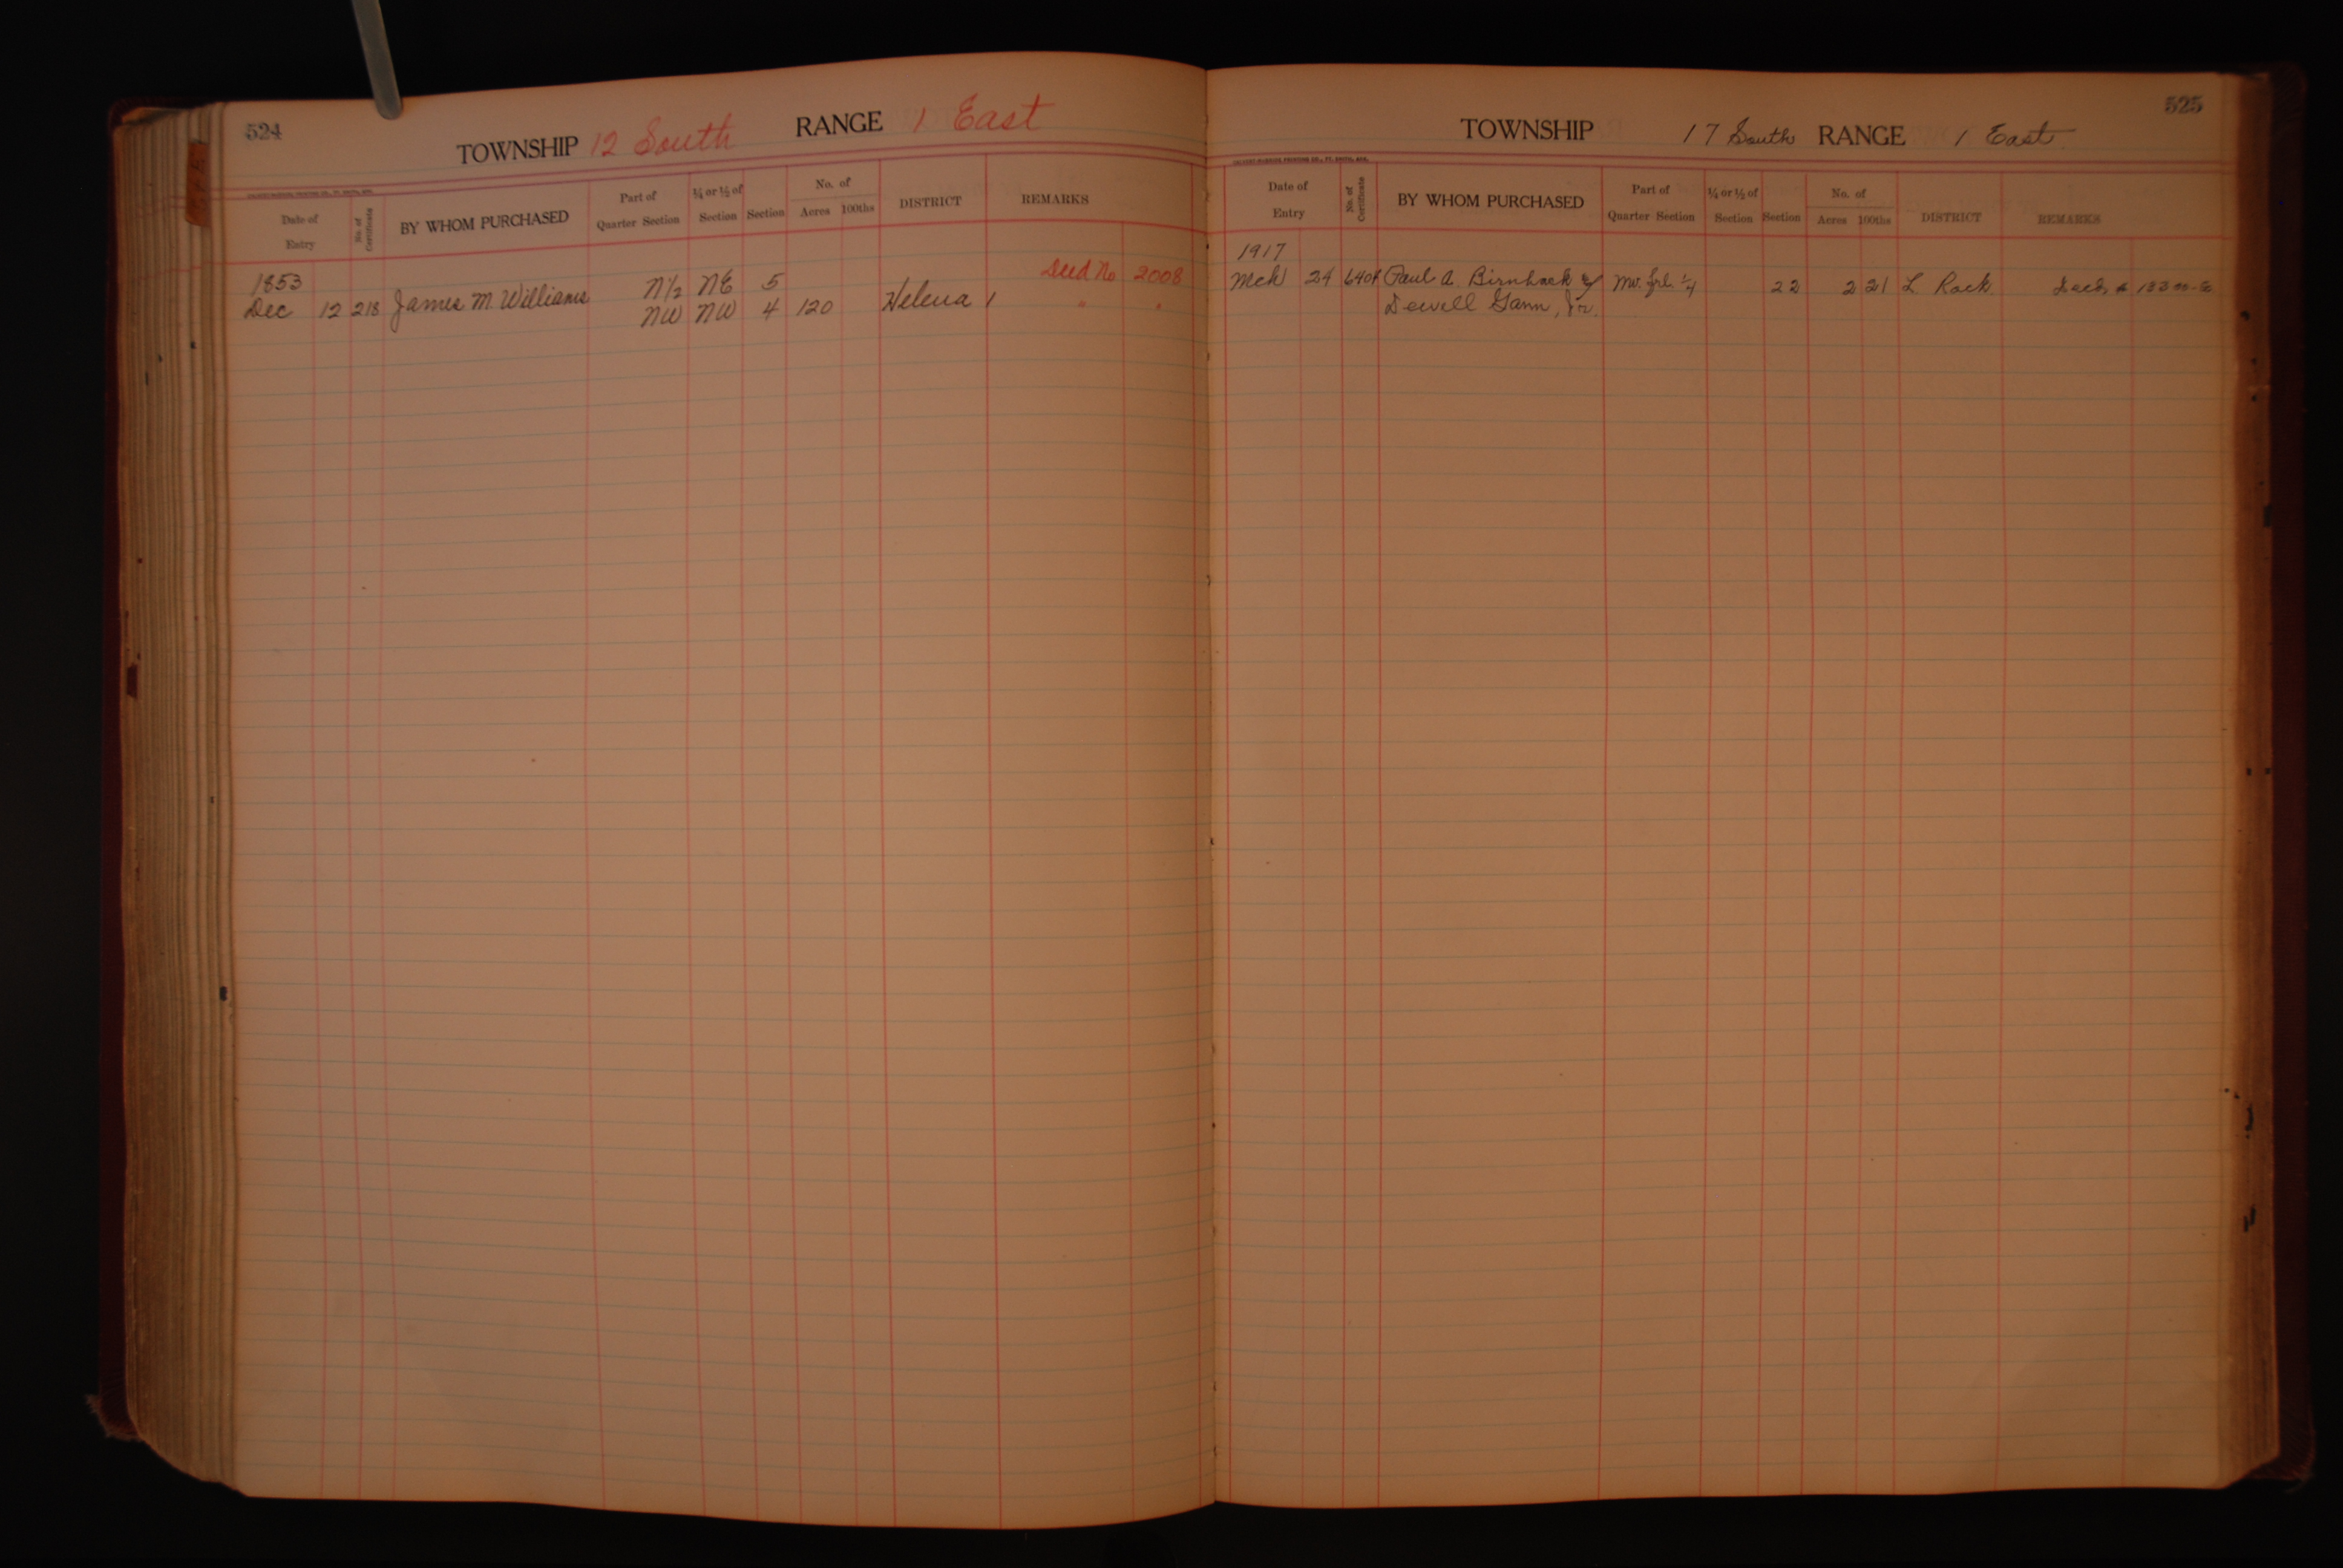 524
TOWNSHIP 12 South RANGE 1 East
Date of Entry No. of Certificate BY WHOM PURCHASED Part of Quarter Section ¼ or ½ of Section Section No. of Acres 100ths DISTRICT REMARKS
1853 N½ NE 5 Deed No 2008
Dec 12 218 James M. Williams NW NW 4 120 Helena 1 " "
525
TOWNSHIP 17 South RANGE 1 East
Date of Entry No. of Certificate BY WHOM PURCHASED Part of Quarter Section ¼ or ½ of Section Section No. of Acres 100ths DISTRICT REMARKS
1917
Mch 24 Paul A. & frl. ¼ 22 2 21 L Rock
Dewell Gann, Jr.